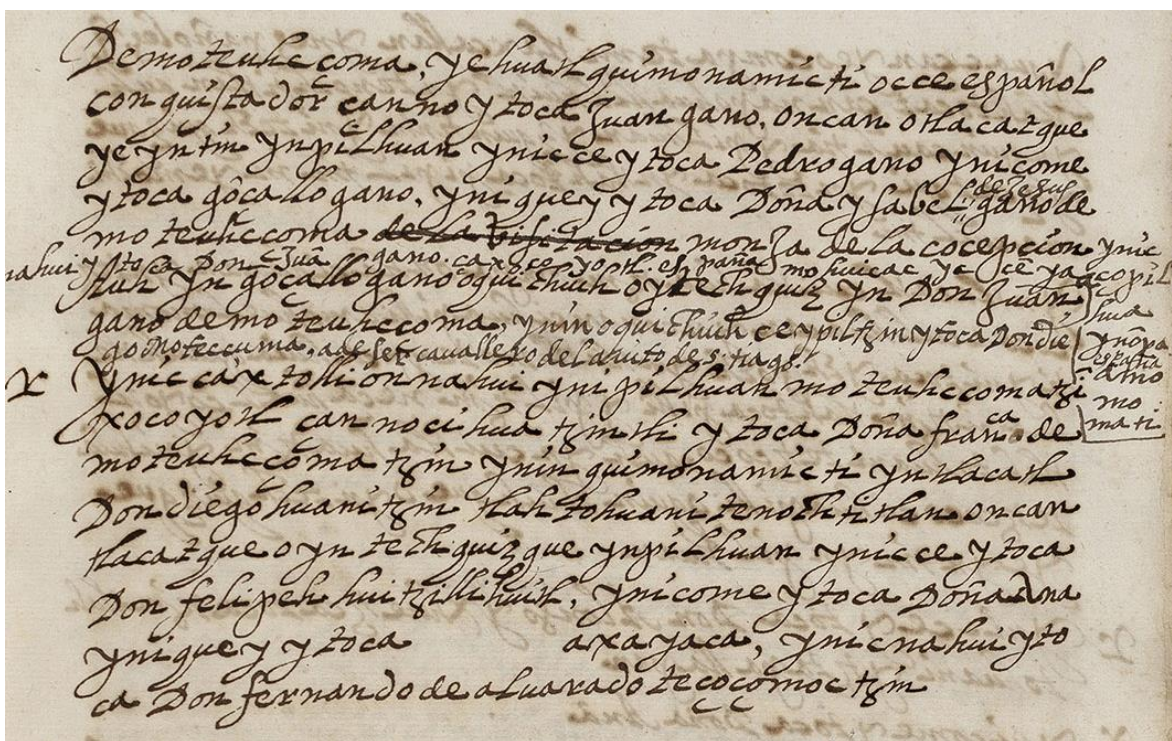 De moteuhcçoma, yehuatl quimonamicti occe español
conquistador çanno ytoca Juan gano. oncan otlacatque
yeyntin ynpilhuan ynic ce ytoca Pedro gano ynic ome
ytoca gôçallo gano, yniquey ytoca Doña ysabel de Jesus gano de
moteuhcçoma de la visitacion monja de la cocepcion ynic
nahui ytoca Don Juā gano. caxce yotl. españa mohuicac ye
yn gôçallo gano oquichiuh oytech quiz yn Don Juan
gano de moteuhcçoma, ynin oquichiuh ce ypiltzin ytoca Don die
go moteccuma. a de ser cavallero del abito de s. tiago.
ynic caxtolli onnahui ynipilhuan moteuhcçomatzi
xocoyotl çanno cihuatzintli ytoca Doña franca. de
moteuhcçomatzin ynin quimonamicti yn tlacatl
Don diego huanitzin tlahtohuani tenochtitlan oncan
tlacatque oyntech quizque ynpilhuan ynic ce ytoca
Don felipeh huitzillihuitl, ynic ome ytoca Doña Ana
yniquey ytoca axayaca, ynic nahui yto
ca Don fernando de alvarado teçoçomoctzin
copil
hua
ynôpa
españa
amo
mo
mati